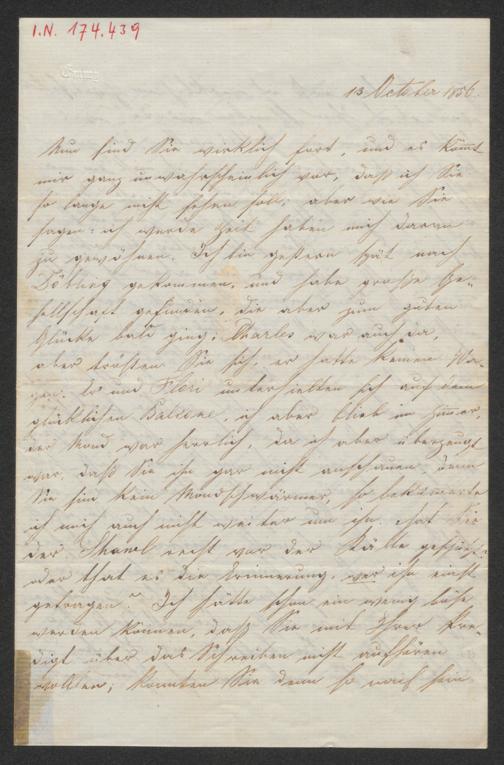 I.N. 174.439
13 October 1856.
Nun sind Sie wirklich fort, und es kömmt
mir ganz unwahrscheinlich vor, daß ich Sie
so lange nicht sehen soll; aber wie Sie
sagen: ich werde Zeit haben mich daran
zu gewöhnen. Ich bin gestern spät nach
Döbling gekommen, und habe große Ge-
sellschaft gefunden, die aber zum guten
Glücke bald ging; Charles war auch da,
aber trösten Sie sich, er hatte keinen Wa-
gen. Er und Flori unterhielten sich auf dem
glücklichen Balcone, ich aber blieb im Zimmer,
der Mond war herrlich, da ich aber überzeugt
war, daß Sie ihn gar nicht anschauen, denn
Sie sind kein Mondschwärmer, so bekümmerte
ich mich auch nicht weiter um ihn. Hat Sie
der Shawl recht vor der Kälte geschützt
oder that es die Erinnerung, wer ihn einst
getragen? Ich hätte schon ein wenig böse
werden können, daß Sie mit Ihrer Pre-
digt über das Schreiben nicht aufhören
wollten; konnten Sie denn so nach sein